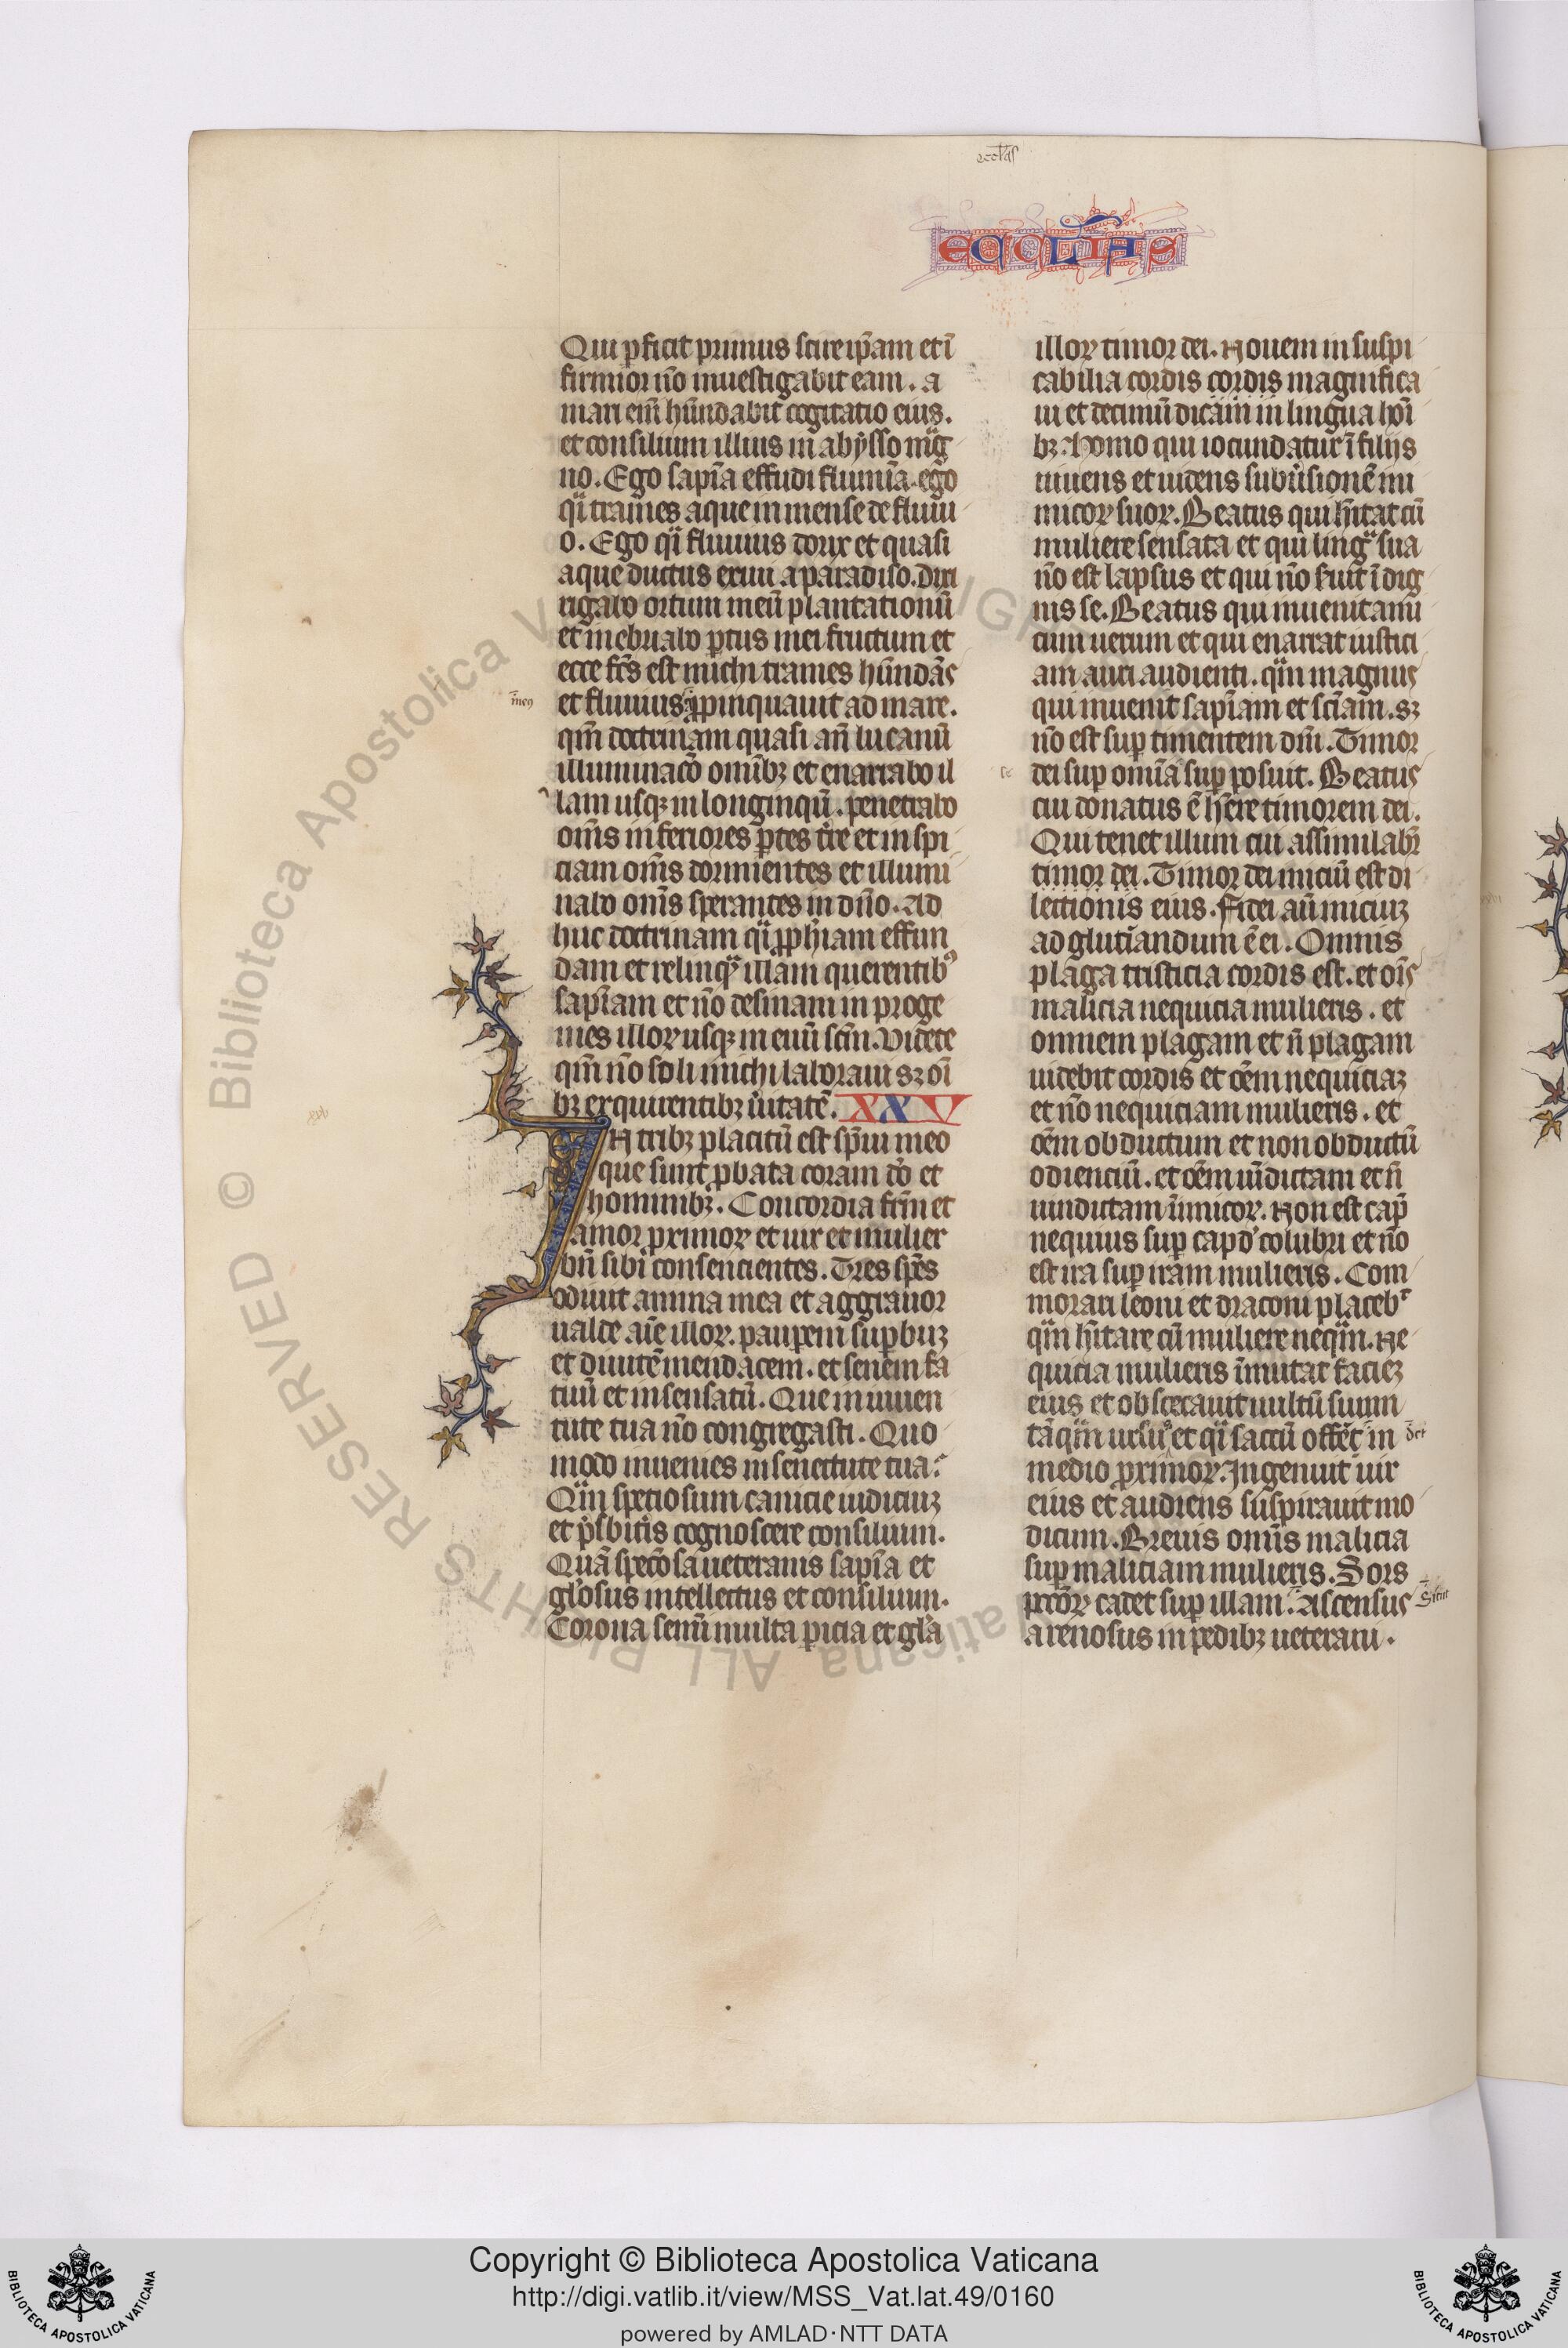 eccl'as
ECCLIAS
Qui ꝑficit primus scire ip̄am et ī
firmior nō inuestigabit eam. a
mari eni᷑ hūndabit cogitatio eius.
et consilium illius in abẏsso mag
no. Ego sapīa effudi flumīa. ego
qi trames aque inmense de fluui
o. Ego qi fluuius dorix et quasi
aque ductus exiui a paradiso. Dixi
rigabo ortum meū plantationū
et inebriabo ꝑtus mei fructum et
ecce fc̄s est michi trames hūndās
et fluuius ꝓpinquauit ad mare.
qm̄ doctrinam quasi an̄ lucanū
illuminacō omībꝫ et enarrabo il
lam usqꝫ in longinqū. penetrabo
om̄s inferiores ꝑtes tre et inspi
ciam om̄s dormientes et illumi
nabo om̄s sperantes in dn̄o. Ad
huc doctrinam qi ꝓphīam effun
dam et relinqᵃ illam querentibꝰ
sapīam et nō desinam in proge
nies illoꝝ usqꝫ in euū scm̄. Videte
qm̄ nō soli michi laboraui sꝫ oī
bꝫ exquirentibꝫ ūitatē. XXV
IN tribꝫ placitū est sp̄ui meo
que sunt ꝓbata coram dō et
hominibꝫ. Concordia frm̄ et
amor ꝓximoꝝ et uir et mulier
bn̄ sibi consencientes. Tres sp̄es
odiuit anima mea et aggrauor
ualde aīe illoꝝ. pauꝑem suꝑbuꝫ
et diuitē mendacem. et senem fa
tuū et insensatū. Que in iuuen
tute tua nō congregasti. Quo
modo inuenies in senectute tua.
Qm̄ speciosum canicie iudiciuꝫ
et p̄sbitis cognoscere consilium.
Quā specōsa ueteranis sapīa et
gl'osus intellectus et consilium.
Corona senū multa ꝑicia et gl'a
illoꝝ timor dei. Nouem in suspi
cabilia cordis cordis magnifica
ui et decimū dicam in lingua hoī
bꝫ. Homo qui iocundatur ī filijs
uiuens et uidens subūsionē ini
micoꝝ suoꝝ. Beatus qui hītat cū
muliere sensata et qui lingᵃ sua
nō est lapsus et qui nō fuit ī dig
nis se. Beatus qui inuenit ami
cum uerum et qui enarrat iustici
am auri audienti. qm̄ magnus
qui inuenit sapīam et scīam. sꝫ
nō est suꝑ timentem dm̄. Timor
dei suꝑ omīa suꝑposuit. Beatus
cui donatus ē hēre timorem dei.
Qui tenet illum cui assimilabr̄
timor dei. Timor dei iniciū est di
lectionis eius. Fidei aū iniciuꝫ
ad glutīandum ē ei. Omnis
plaga tristicia cordis est. et oīs
malicia nequicia mulieris. et
omnem plagam et n̄ plagam
uidebit cordis et oēm nequiciaꝫ
et nō nequiciam mulieris. et
oēm obductum et non obductū
odienciū. et oēm uīdictam et n̄
uindictam īnimicoꝝ. Non est cap̄
nequius suꝑ cap̄d' colubri et nō
est ira suꝑ iram mulieris. Com
morari leoni et draconi placebᵗ
qm̄ hītare cū muliere neqm̄. Ne
quicia mulieris īmutat facieꝫ
eius et obscecauit uultū suum
tāqm̄ ursuꝰ et qi saccū offēt in
medio ꝓximoꝝ. Ingemuit uir
eius et audiens suspirauit mo
dicum. Breuis omīs malicia
suꝑ maliciam mulieris. Sors
pccōꝝ cadet suꝑ illam. Ascensus
arenosus in pedibꝫ ueterani.
Sicut
Copyright © Biblioteca Apostolica Vaticana
http://digi.vatlib.it/view/MSS_Vat.lat.49/0160
powered by AMLAD·NTT DATA
BIBLIOTECA APOSTOLICA VATICANA
BIBLIOTECA APOSTOLICA VATICANA